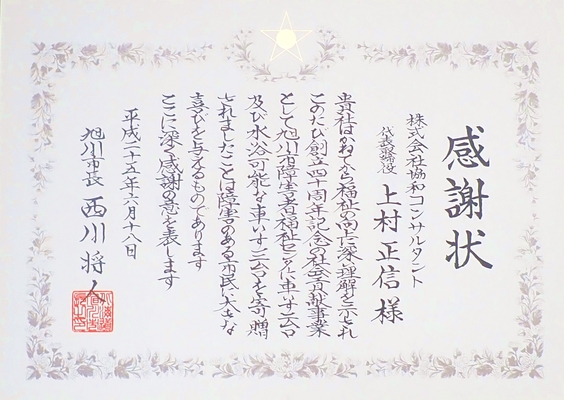 感謝状
株式会社協和コンサルタント
代表取締役 上村正信様
貴社はかねてから福祉の向上に深い理解を示され
このたび創立四十周年記念の社会貢献事業
として旭川市障害者福祉センターに車いす六台
及び水浴可能な車いす二台を寄贈
されましたことは障害のある市民に大きな
喜びを与えるものであります
ここに深く感謝の意を表します
平成二十五年六月十八日
旭川市長 西川将人